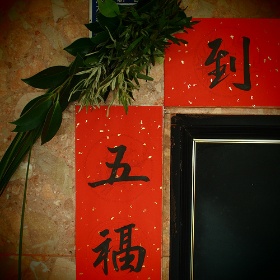 到
五福